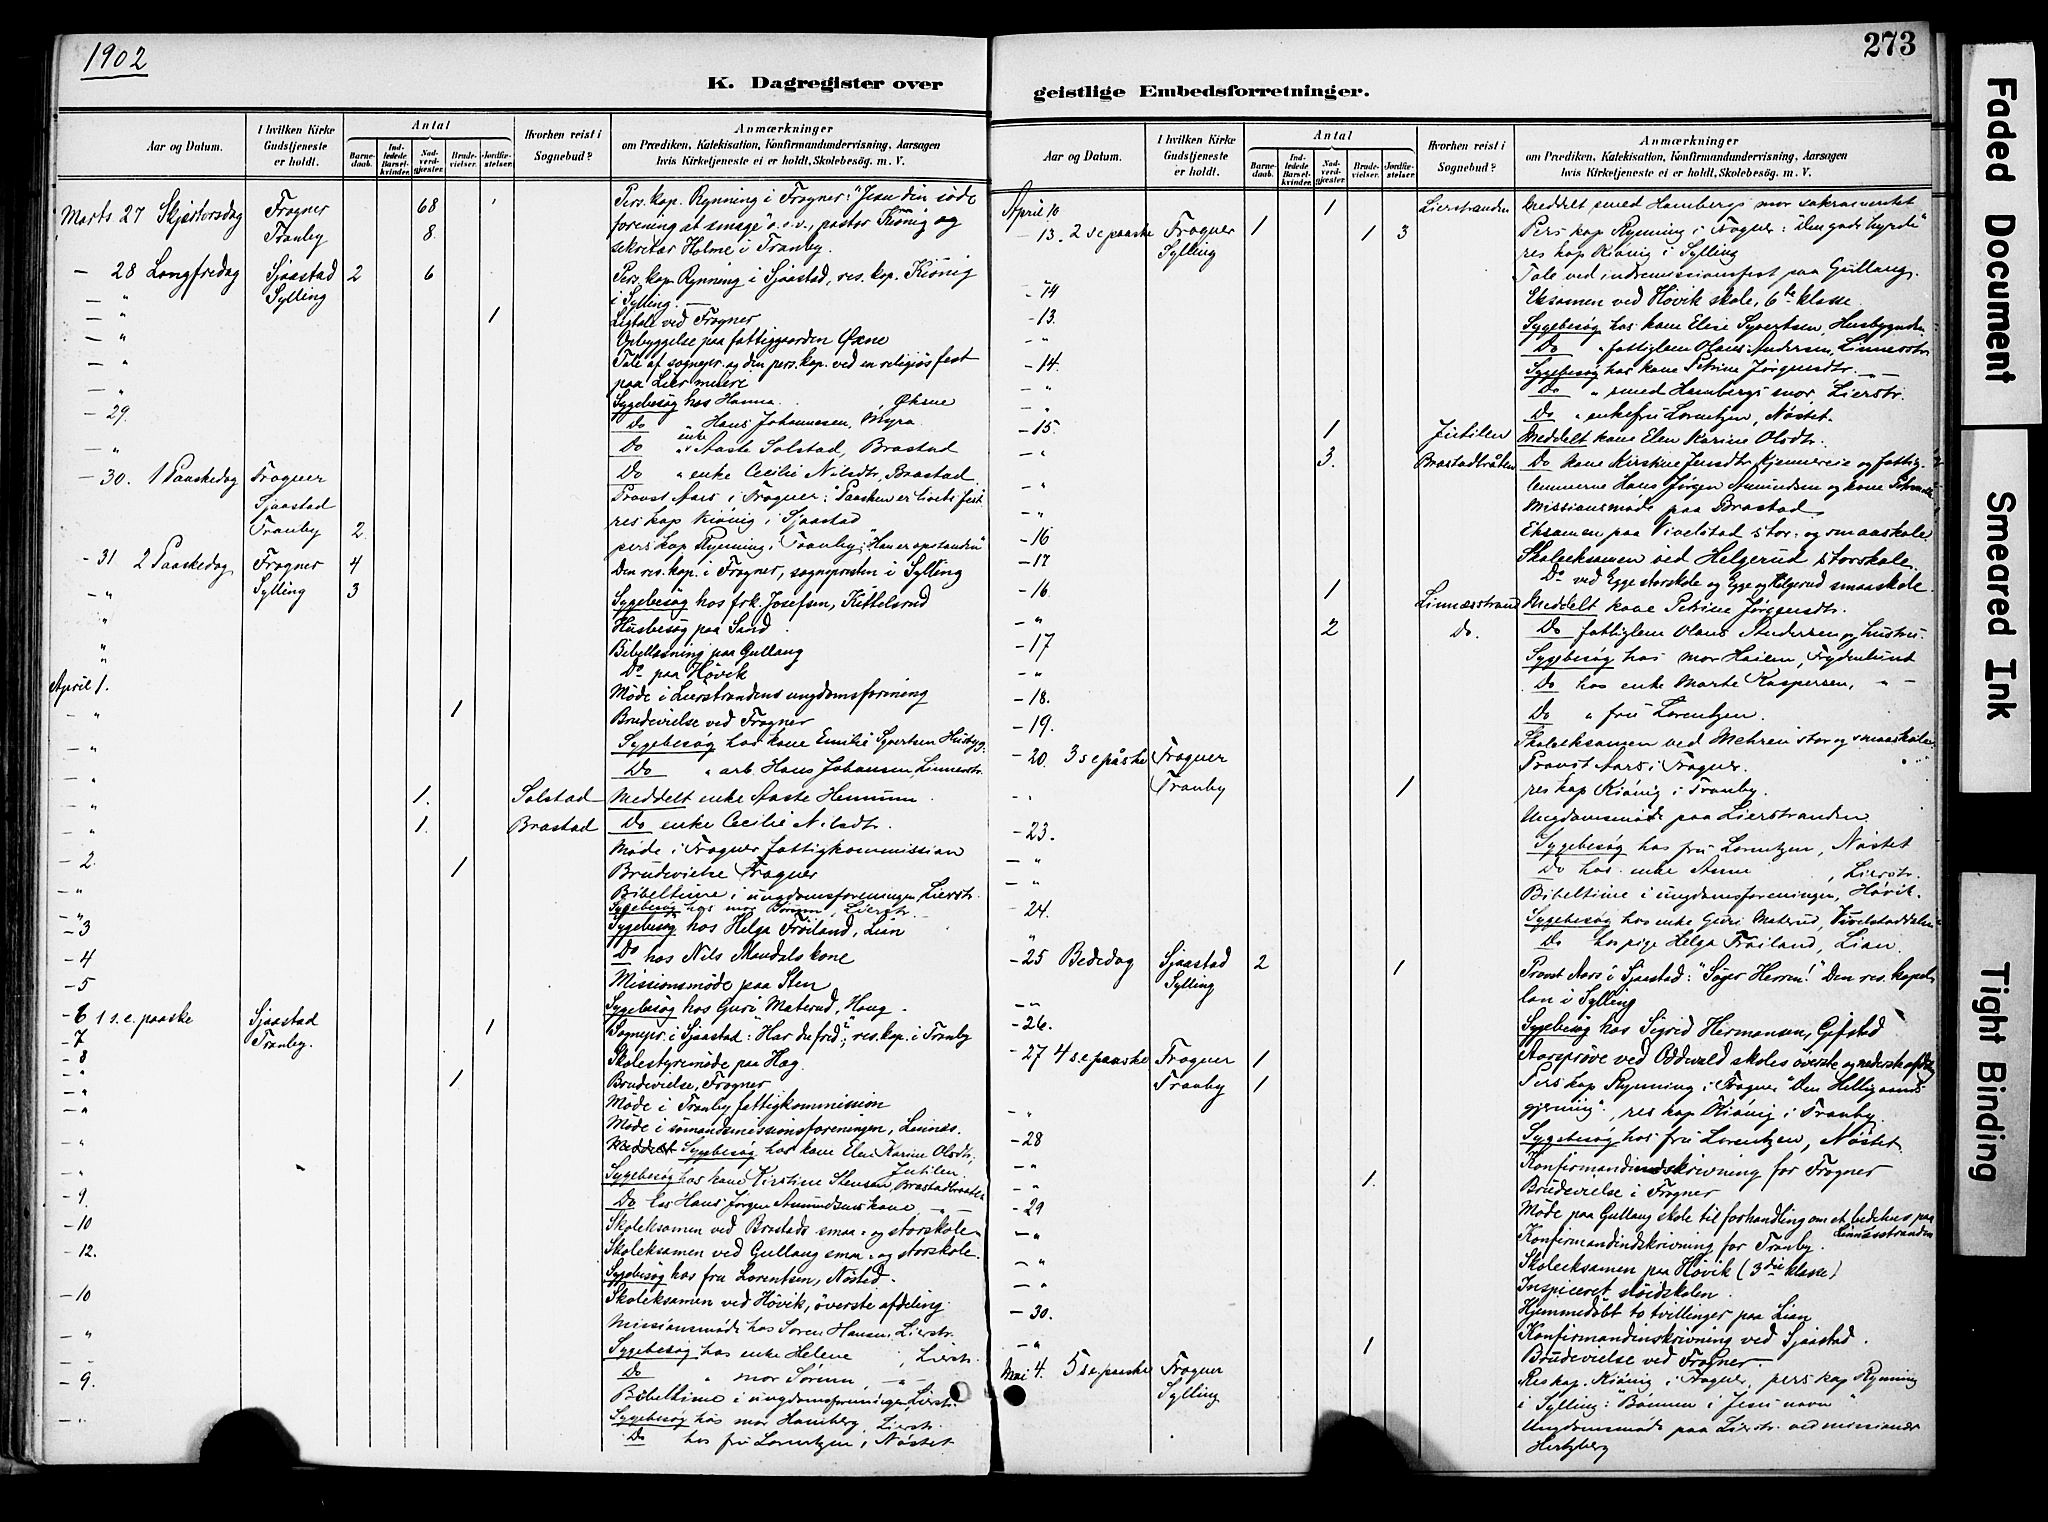 1902
K. Dagregister over
Aar og Datum.
I hvilken Kirke Gudstjeneste er holdt.
Antal
Barne-daab.
Ind-ledede Barsel-kvinder.
Nad-verd-gjæster.
Brude-vielser.
Jordfæ-stelser.
Hvorhen reist i Sognebud?
Anmærkninger
om Prædiken, Katekisation, Konfirmandundervisning, Aarsagen
hvis Kirketjeneste ei er holdt, Skolebesög. m. V.
Marts 27 Skjærtorsdag Frogner 68 Pers. kap. Rynning i Frogner: "Jesu din søde
Tranby 8. forening at smage" o.s.v., pastor Kiönig og
sekretær Holme i Tranby.
- 28 Langfredag Sjaastad 2 6 Pers. kap. Rynning i Sjaastad, res. kap. Kiönig
- " Sylling i Sylling. -
- " 1 Ligtale ved Frogner
- " Opbyggelse paa fattiggaarden Øxne
- " Tale af sognepr. og den pers. kap. ved en religiøs fest
paa Lier meieri
- 29. Sygebesøg hos Hanna , Øksne
Do " Hans Johannesen, Myra.
- " Do " enke Aaste Solstad, Brastad
- 30. 1 Paaskedag Frogner Do " enke Cecilie Nilsdtr, Brastad
Sjaastad Provst Aars i Frogner: "Paasken er livets fest
Tranby 2. res kap Kiönig i Sjaastad
pers kap Rynning i Tranby: "Han er opstanden"
- 31 2 Paaskedag Frogner 4 Den res. kap. i Frogner, sognepresten i Sylling
- " Sylling 3 Sygebesøg hos frk. Josefsen, Kittelsrud
" Husbesøg paa Sand.
" Bibellæsning paa Gullaug
" Do paa Høvik
April 1. Møde i Lierstrandens ungdomsforening
- " 1 Brudevielse ved Frogner
- " Sygebesøg hos kone Emilie Syvertsen Husbyg.
- " Do " arb. Hans Johansen Linnesstr.
- " 1. Solstad Meddelt enke Aaste Hennum.
- " 1. Brastad Do enke Cecilie Nilsdtr.
- 2. Møde i Frogner fattigkommission
- " 1 Brudevielse Frogner
- " Bibeltime i ungdomsforeningen, Lierstr.
Sygebesøg hos mor Sørum, Lierstr.
- 3 Sygebesøg hos Helga Frøiland, Lian
- 4 Do hos Nils Mandals kone
- 5 Missionsmøde paa Sten
Sygebesøg hos Guri Materud, Haug.
- 6 1 s. e. paaske Sjaastad 1 Sognepr. i Sjaastad: "Har du fred", res. kap. i Tranby
- 7 Tranby. Skolestyremøde paa Hag.
- 8 1 Brudevielse, Frogner
- " Møde i Tranby fattigkommission
- " Møde i sømandsmissionsforeningen, Linnes.
- " Sygebesøg hos kone Elen Karine Olsdtr, Jutilen
- " Sygebesøg hos kone Kirstine Stensen, Brastadbraaten
- 9. Do hos Hans Jörgen Amundsens kone, - " -
- 10 Skoleksamen ved Brastads smaa- og storskole
- 12. Skoleksamen ved Gullaug smaa- og storskole.
Sygebesøg hos fru Lorentsen, Nöstet.
- 10 Skoleksamen ved Høvik, øverste afdeling.
- " Missionsmøde hos Søren Hansen, Lierstr.
- " Sygebesøg hos enke Helene , Lierstr.
- 9. Do " mor Sørum - " -
Bibeltime i ungdomsforeningen, Lierst.
- " Sygebesøg hos mor Hamberg, Lierstr.
Do hos fru Lorentzen, Nöstet
273
geistlige Embedsforretninger.
Aar og Datum.
I hvilken Kirke Gudstjeneste er holdt.
Antal
Barne-daab.
Ind-ledede Barsel-kvinder.
Nad-verd-gjæster.
Brude-vielser.
Jordfæ-stelser.
Hvorhen reist i Sognebud?
Anmærkninger
om Prædiken, Katekisation, Konfirmandundervisning, Aarsagen
hvis Kirketjeneste ei er holdt, Skolebesög. m. V.
April 10 1 Lierstranden Meddelt smed Hambergs mor sakramentet
- 13. 2 s e paaske Frogner 1 1 3 Pers kap Rynning i Frogner: "Den gode hyrde"
Sylling res kap Kiönig i Sylling
Tale ved indremissionsfest paa Gullaug.
- 14 Eksamen ved Høvik skole, 6te klasse.
- 13. Sygebesøg hos kone Elise Syvertsen, Husbygrden
- " Do " fattiglem Olaus Andersen, Linnesstr.
- 14. Sygebesøg hos kone Petrine Jørgensdtr. - " -
- " Do " smed Hambergs mor, Lierstr.
- " Do " enkefru Lorentzen, Nöstet.
- 15. 1 Jutilen Meddelt kone Elen Karine Olsdtr.
- " 3. Brastadbråten Do kone Kirstine Jensdtr Kjennereie og fattig-
- " lemmerne Hans Jørgen Amundsen og kone
- " Missionsmøde paa Brastad
- 16 Eksamen paa Vivelstad stor- og smaaskole.
- 17 Skoleeksamen ved Helgerud storskole.
Do ved Egge storskole og Egge og Helgerud smaaskole
- 16. 1 Linnesstrand Meddelt kone Petrine Jørgensdtr.
- " 2 Do. Do fattiglem Olaus Andersen og hustru.
- 17 Sygebesøg hos mor Haiem, Frydenlund
- " Do hos enke Marte Kaspersen, " -
- 18. Do " fru Lorentzen.
- 19. Skoleeksamen ved Mehren stor og smaaskole.
- 20. 3 s e påske Frogner Provst Aars i Frogner.
" Tranby 1 res kap Kiönig i Tranby.
- 23. Ungdomsmøde paa Lierstranden.
- " Sygebesøg hos fru Lorentzen, Nöstet
- " Do hos enke Anne , Lierstr.
- 24. Bibeltime i ungdomsforeningen, Høvik.
Sygebesøg hos enke Guri Materud, Vivelstaddalen
" Do hos pige Helga Frøiland, Lian.
- 25 Bededag Sjaastad 2 1 Provst Aars i Sjaastad: "Søger Herren!" Den res. kapel-
Sylling lan i Sylling
- 26. Sygebesøg hos Sigrid Hermansen, Gifstad
- 27 4 s. e paaske Frogner 1 Aarsprøve ved Oddevald skoles øverste og nederste afdeling
Tranby 1 Pers kap Rynning i Frogner "Den Helligaands
- " gjerning", res kap Kiönig i Tranby.
- 28 Sygebesøg hos fru Lorentzen, Nöstet.
- " Konfirmandindskrivning for Frogner
- " 1. Brudevielse i Frogner
- 29 Møde paa Gullaug skole til forhandling om et bedehus paa Linnesstranden
- " Konfirmandindskrivning for Tranby.
- " Skoleeksamen paa Høvik (3die klasse)
- " Inspiceret sløidskolen.
- 30. Hjemmedøbt to tvillinger paa Lian
- " Konfirmandinskrivning ved Sjaastad.
1 Brudevielse ved Frogner -
Mai 4. 5 s e paaske Frogner Res kap. Kiönig i Frogner, pers kap Rynning
Sylling i Sylling: "Bønnen i Jesu navn"
Ungdomsmøde paa Lierstr. ved missionær
Hertzberg
Faded Document
Smeared Ink
Tight Binding